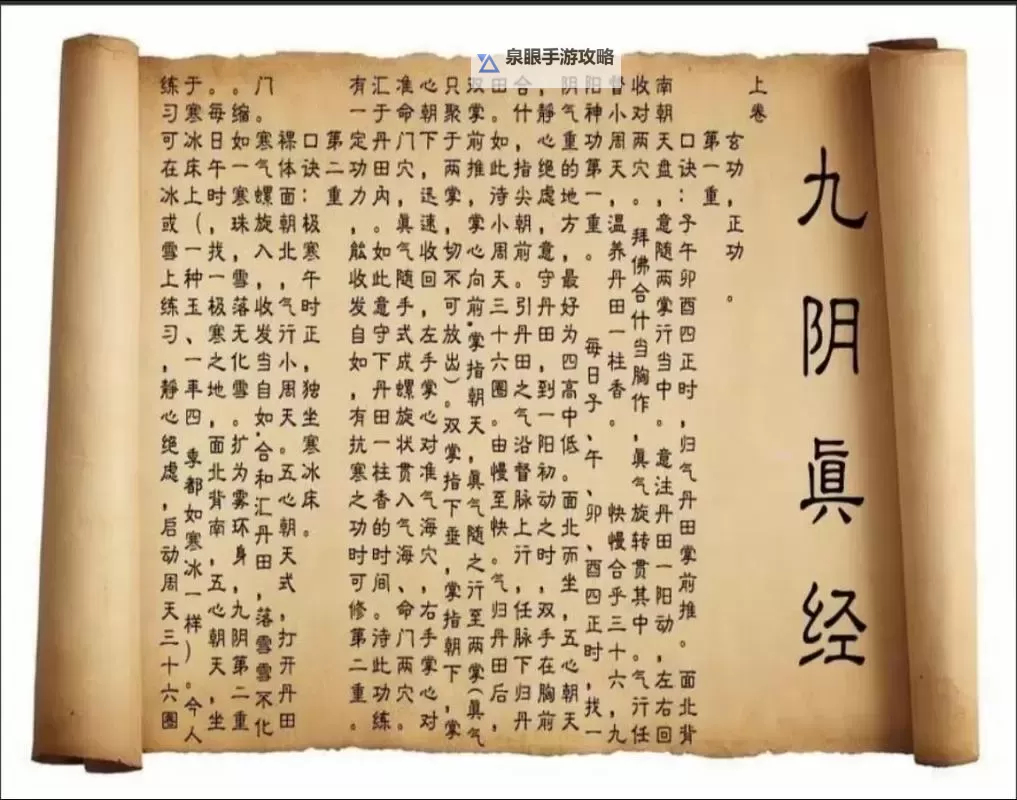 泉眼手游攻略
九阴眞经
上卷
玄功，正功。
第一重，
口诀：子午卯酉四正时，归气丹田掌前推。面北背
南朝天盘，意随两掌行当中。意注丹田一阳动，左右回
收对两穴。拜佛合什当胸作，眞气旋转贯其中。气行任
督小周天，温养丹田一柱香。快慢合乎三十六，九
阳神功第一重。每日子、午、卯、酉四正时，找一
阴气重的地方，最好为四高中低。面北而坐，五心朝天
，静心绝虑，意守丹田，到一阳初动之时，双手在胸前
合什，指尖朝前。引丹田之气沿督脉上行，任脉下归丹
田。如此待小周天三十六圈。由慢至快。气归丹田后，
双掌前推，掌心向前.掌指朝天，眞气随之行至两掌（眞气
只聚于两掌，切不可放出）。双掌指下垂，掌指朝下，掌
心朝下，迅速收回，左手掌心对准气海穴，右手掌心对
准命门穴，眞气随手式成螺旋状贯入气海、命门两穴。
汇于丹田内。如此意守下丹田一柱香的时间。待此功练
有一定功力，能收发自如，有抗寒之功时可修第二重。
第二重：
口诀：极寒午时正，独坐寒冰床。
裸体面朝北，气行小周天。五心朝天式，打开丹田
门 寒气螺旋入，收发当自如.合和汇丹田，落雪雪不化
。缩如一寒珠，雪落无化雪。扩为雾环身，九阴第二重
。每日午时，找一极寒之地，面北背南，五心朝天，坐
于寒冰床上（一种玉、一年四季都如寒冰一样）。今人
练习可在冰或雪上练习，静心绝虑，启动周天三十六圈